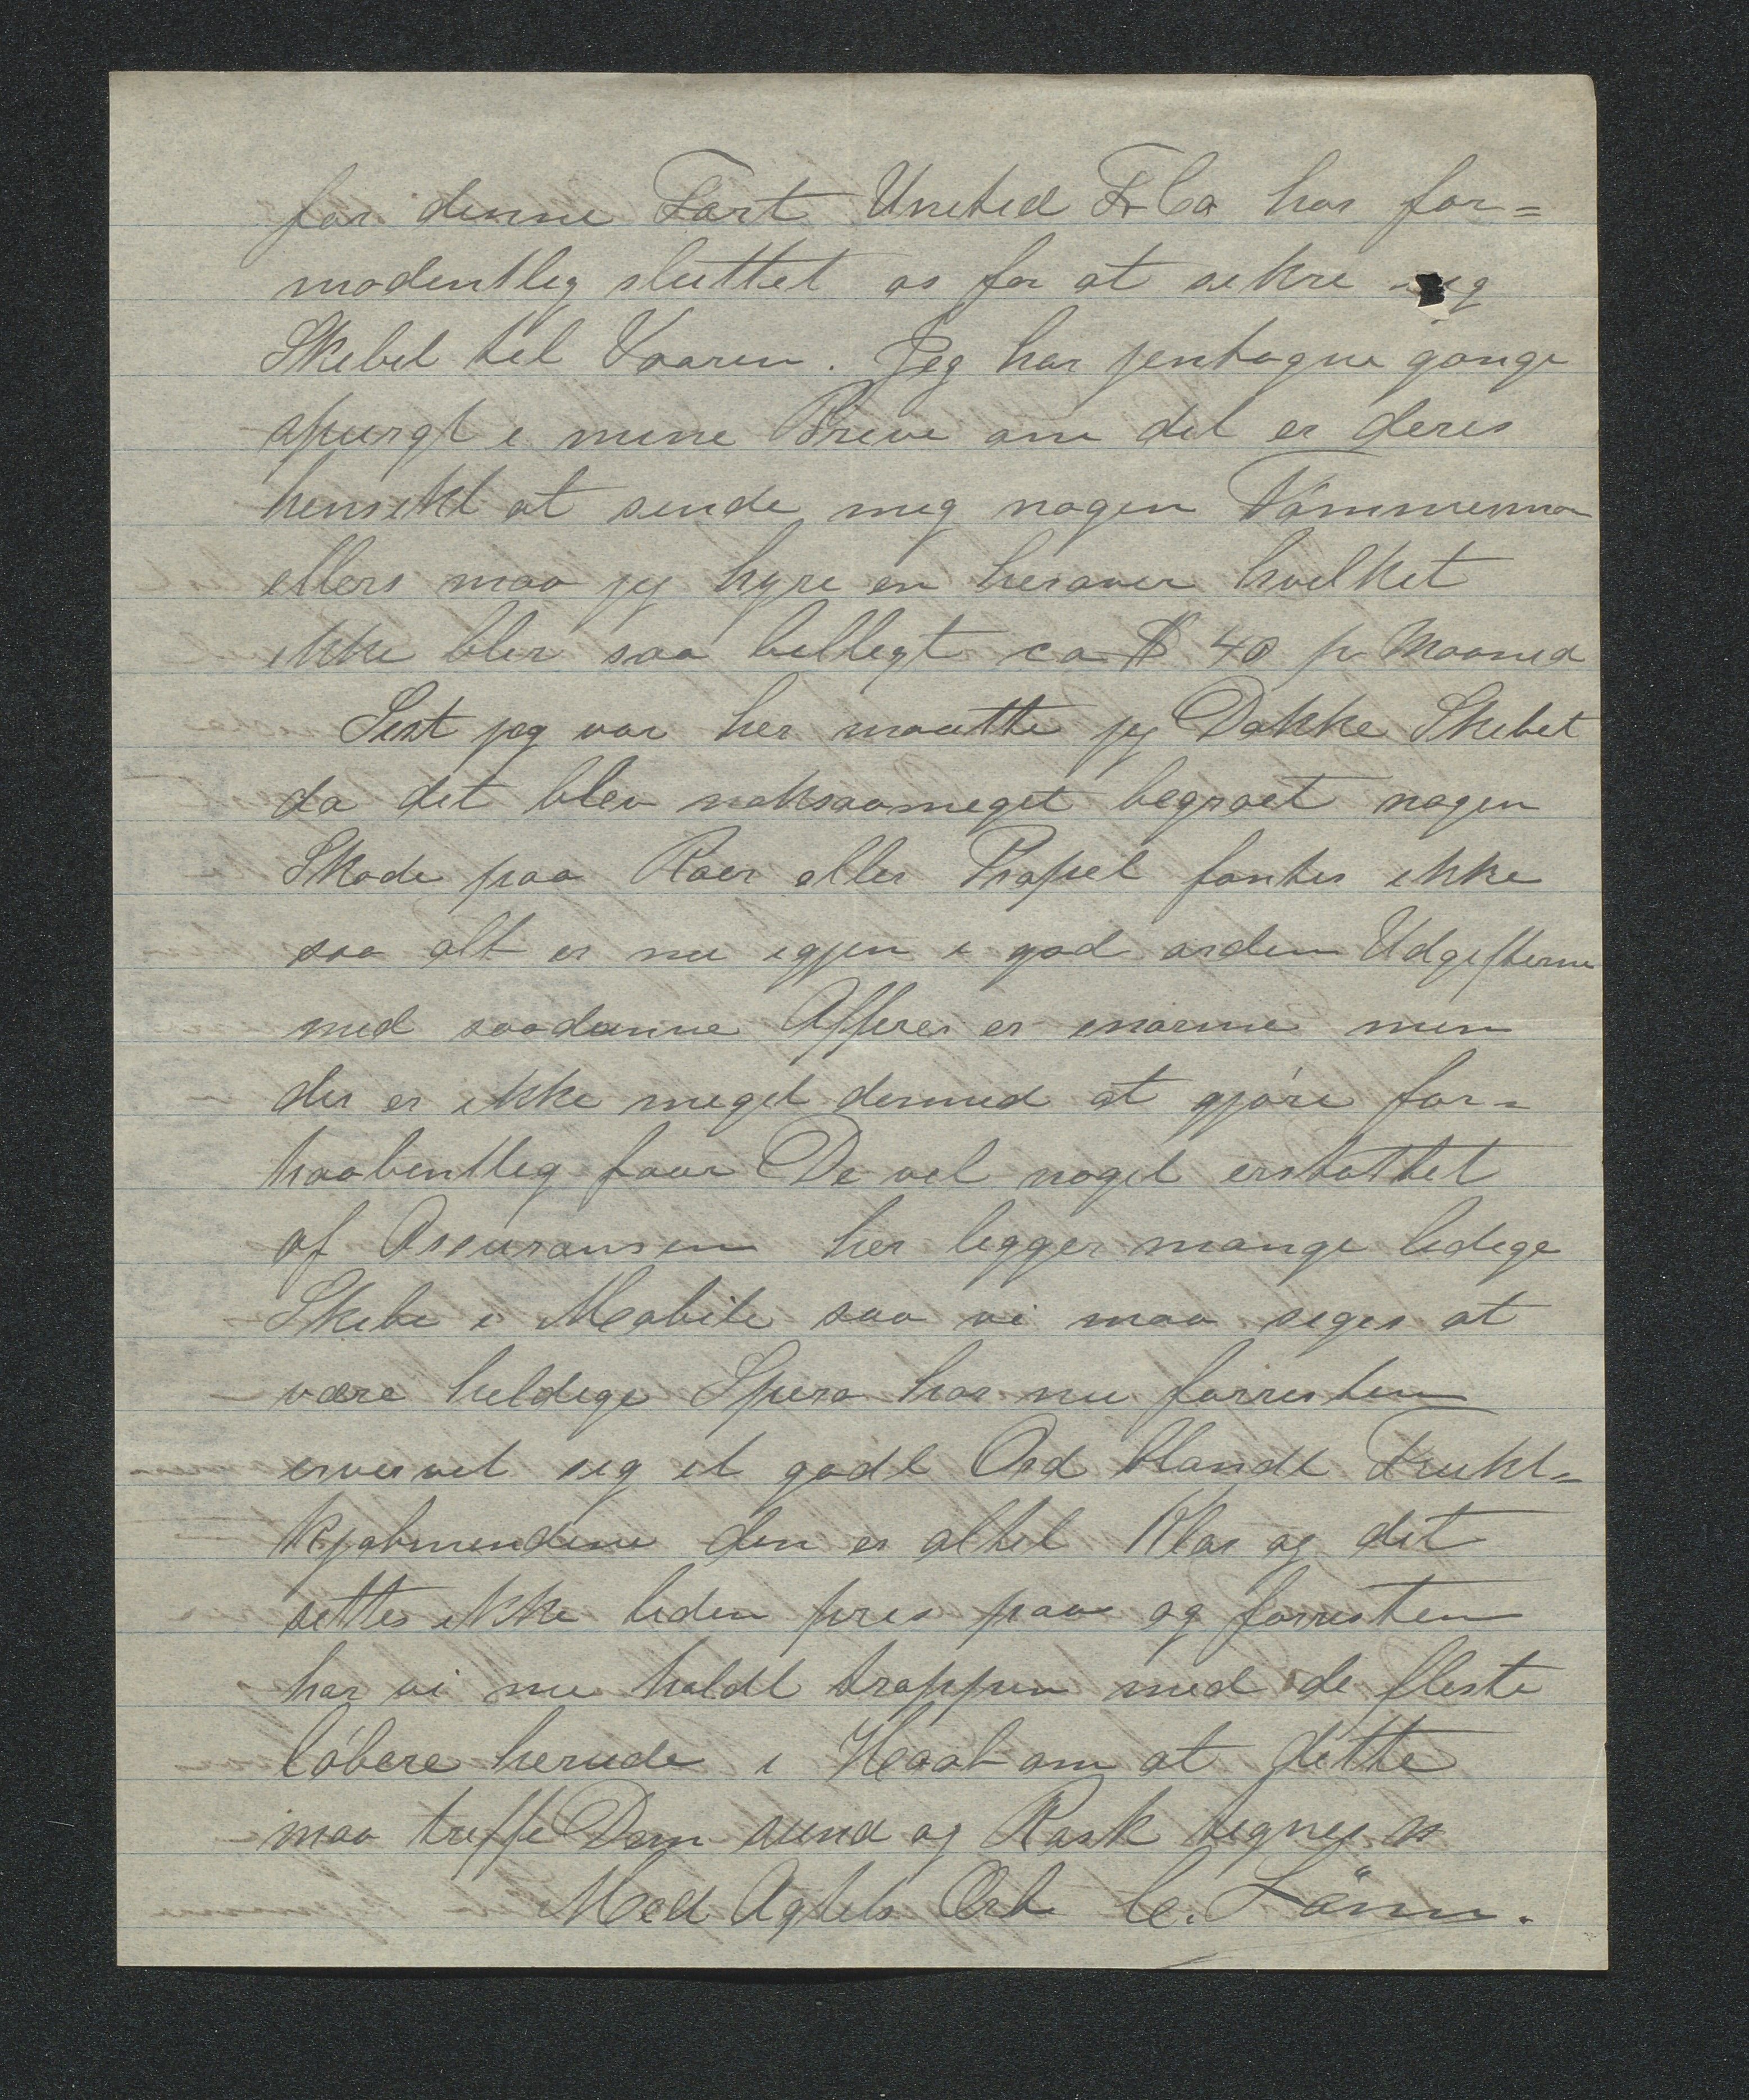 for denne Fart United F. Co har for=
modentlig sluttet os for at sikre sig
Skibet til Vaaren. Jeg har jentagne gange
spurgt i mine Breve om det er deres
hensikt at sende mig nogen Tømmerman
ellers maa jeg hyre en herover hvilket
ikke blir saa billigt ca $ 40 pr Maaned
Sist jeg var her maatte jeg Dokke Skibet
da det blev noksaameget begroet nogen
Skade paa Roer eller Propel fantes ikke
saa alt er nu igjen i god orden Udgifterne
med saadanne Affærer er enorme men
der er ikke meget dermed at gjøre for=
haabentlig faar De vel noget erstattet
af Assuransen her ligger mange ledige
Skibe i Mobile saa vi maa siges at
være heldige Spero har nu forresten
ervervet sig et godt Ord blandt Frukt=
kjøbmendene den er altid Klar og det
settes ikke liden pris paa og forresten
har vi nu holdt trappen med de fleste
løbere herude i Haab om at dette
maa treffe Dem sund og Rask tegnes
Med Agtels Erb C. Lønn.